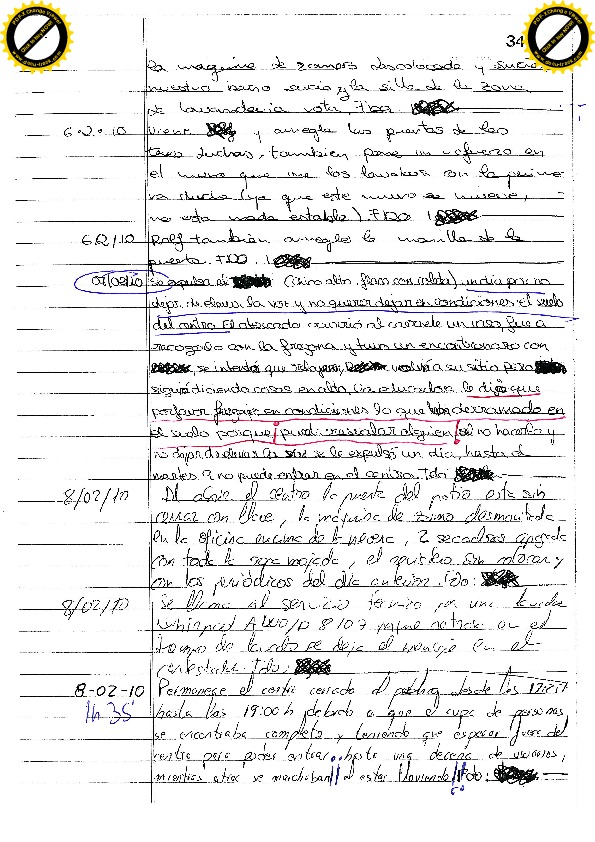 34
la maquina de zumos descolocada y sucia
nuestro baño sucio y la silla de la zona
de lavanderia rota. FDO.
6.2.10 Viene Ralf y arregla las puertas de las
duchas, también pone un refuerzo en
el muro que une los lavabos con la primera
ducha (ya que este muro se mueve,
no esta nada estable). FDO
6/2/10 Ralf también arregla la manilla de la
puerta. FDO.
07/02/10 Se expulsa a (chico alto, flaco con), un día por no
dejar de elevar la voz y no querer dejar en condiciones el suelo
del centro. El abocado ocurrió al un vaso fue a
recogerlo con la fregona y tuvo un encontronazo con
se intentó que, volvió a su sitio pero
siguió diciendo cosas en alto, la educadora le dijo que
por favor fregase en condiciones lo que había derramado en
el suelo porque ¡puedi resvalar alguien! al no hacerlo y
no dejar de elevar la voz se le expulsó un día, hasta el
martes 9 no puede entrar en el centro. Fdo
8/02/10 Al abrir el centro la puerta del patio esta sin
cerrar con llave, la maquina de zumo desmontada
en la oficina encima de la nevera, 2 secadoras apagadas
con toda la ropa mojada, el sin rotar y
con los periódicos del día anterior. Fdo:
8/02/10 Se llama al servicio técnico por una lavadora
Whirlpool AWO/D 8107 porque no en el
tiempo de lavado se deja el mensaje en el
contestador. Fdo:
8-02-10 Permanece el centro cerrado al público desde las 17:25 h
1h 35' hasta las 19:00 h debido a que el cupo de personas
se encontraba completo y teniendo que esperar fuera del
centro para poder entrar hasta una decena de usuarios,
mientras otros se marchaban // al estar lloviendo // Fdo: